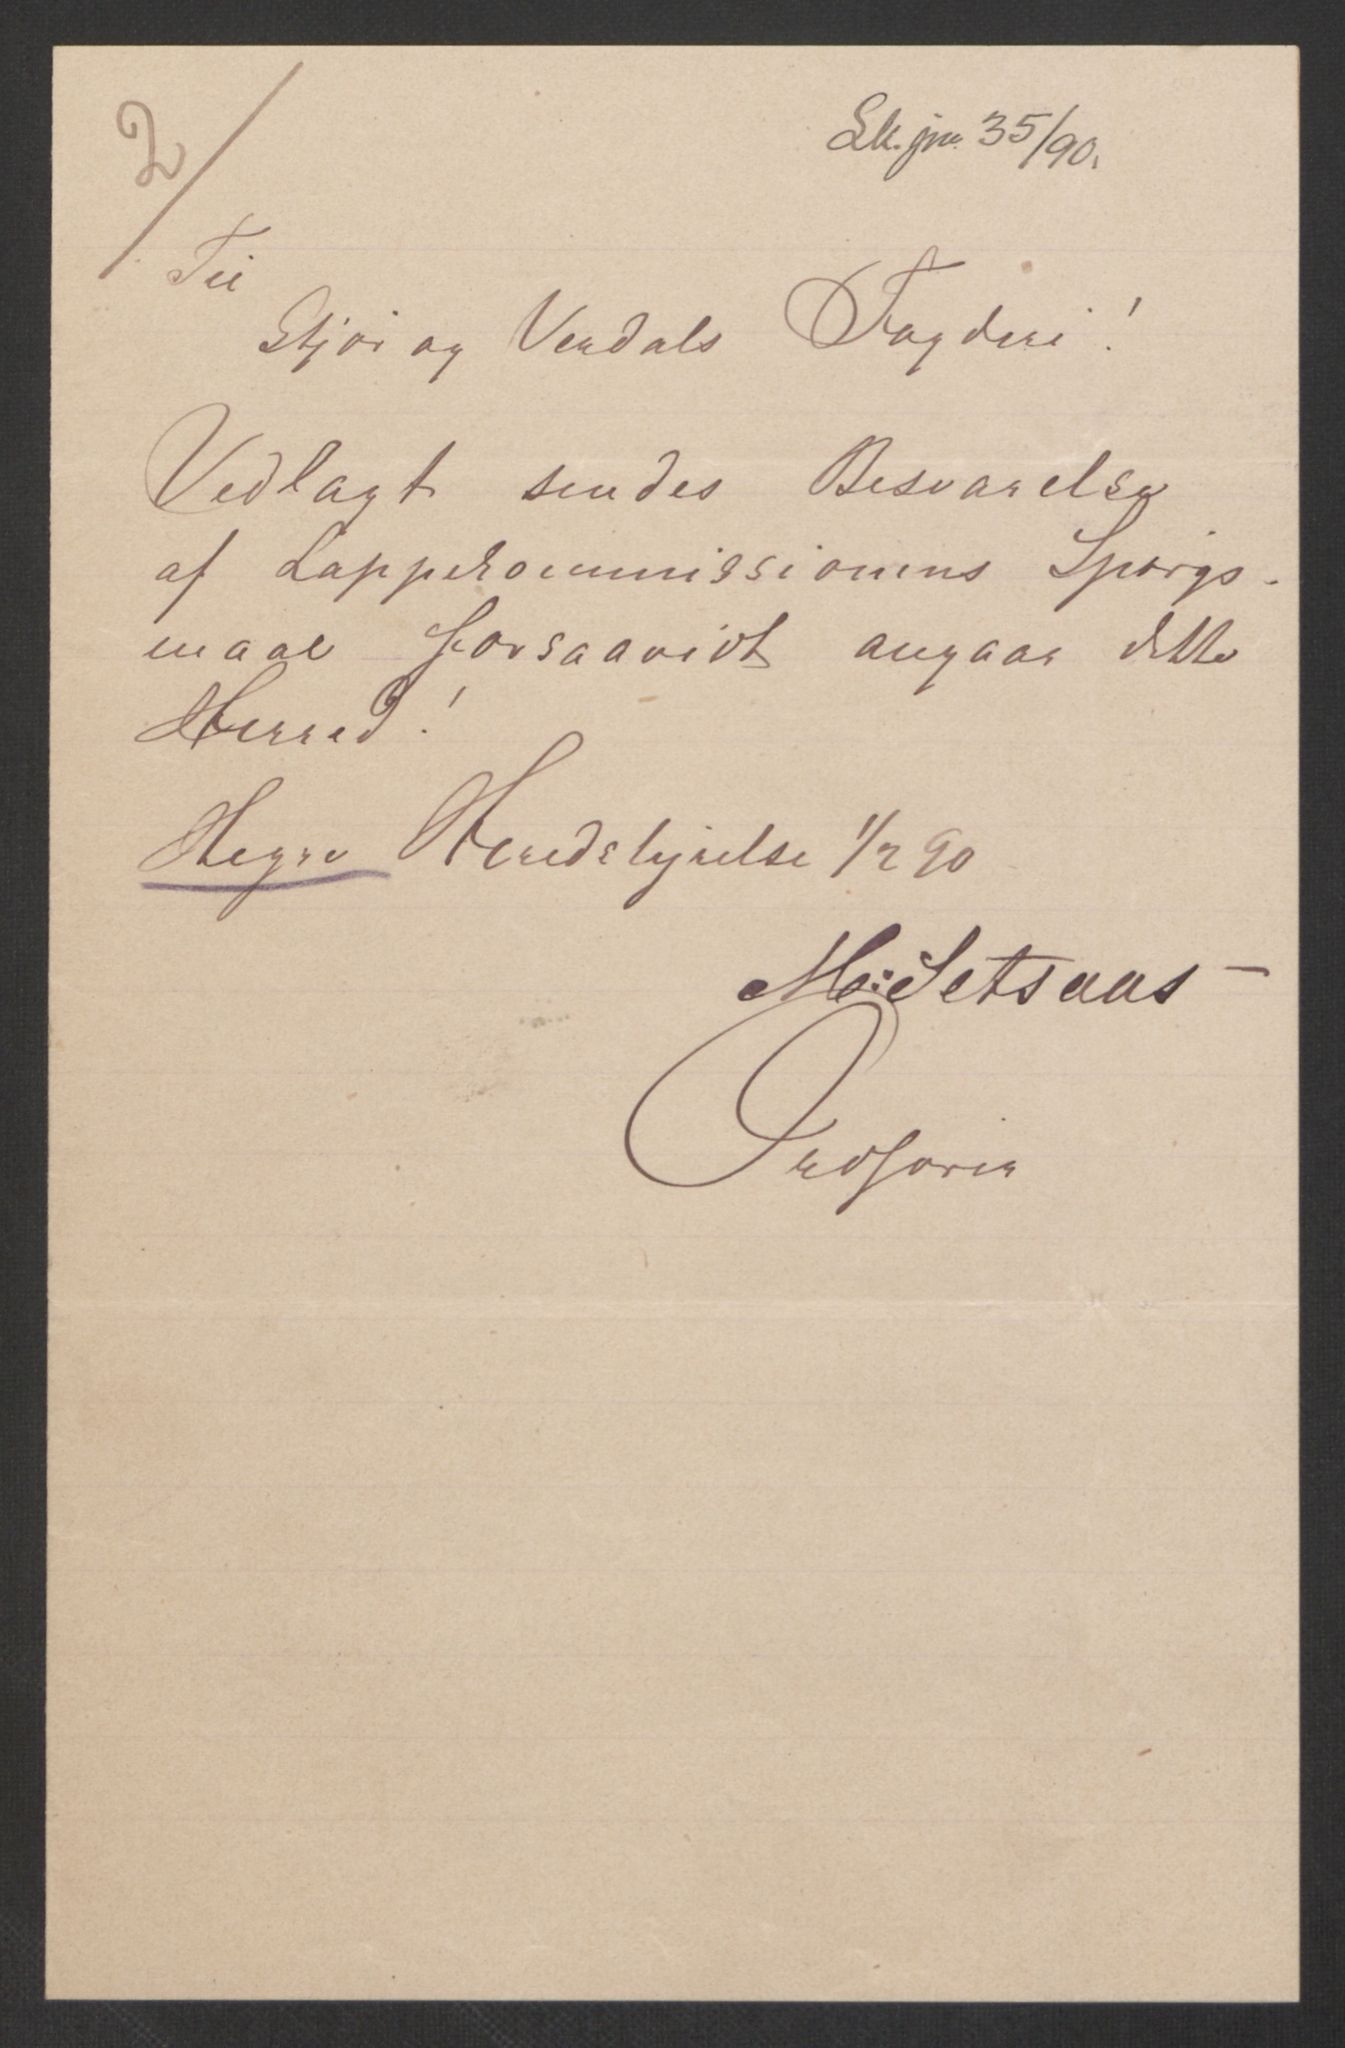 2/
Lk. jnr. 35/90.
Til
Stjør og Verdals Fogderi!
Vedlagt sendes Besvarelse
af Lappekommissionens Spørgs-
maal forsaavidt angaar dette
Herred!
Hegre Heredstyrelse 1/7 90
M: Setsaas
Ordfører